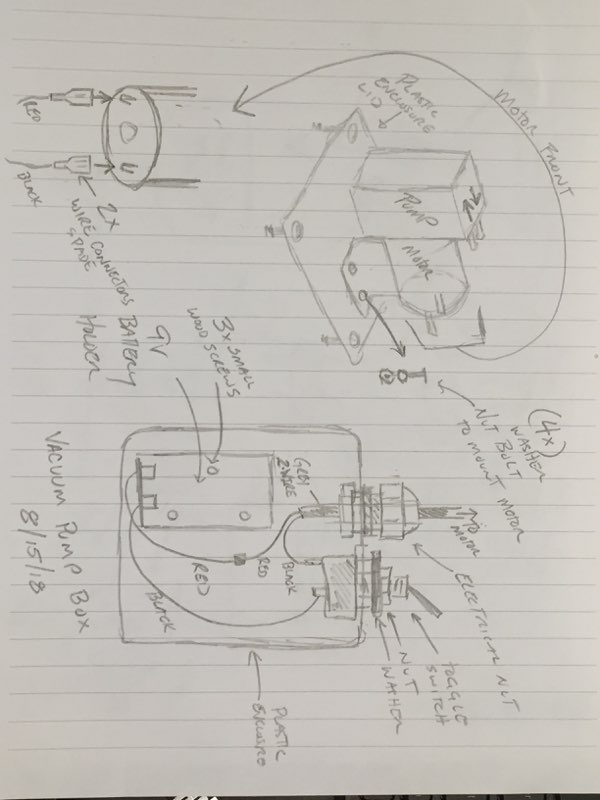 MOTOR FRONT
PLASTIC
ENCLOSURE
LID
PUMP
MOTOR
(4x)
WASHER
NUT BOLT
TO MOUNT MOTOR
RED
BLACK
2x
WIRE CONNECTORS
SPADE
9V
BATTERY
HOLDER
3x SMALL
WOOD SCREWS
2 WIRE
TO
MOTOR
ELECTRICAL NUT
TOGGLE
SWITCH
NUT
WASHER
RED
RED
BLACK
BLACK
PLASTIC
ENCLOSURE
VACUUM PUMP BOX
8/15/18